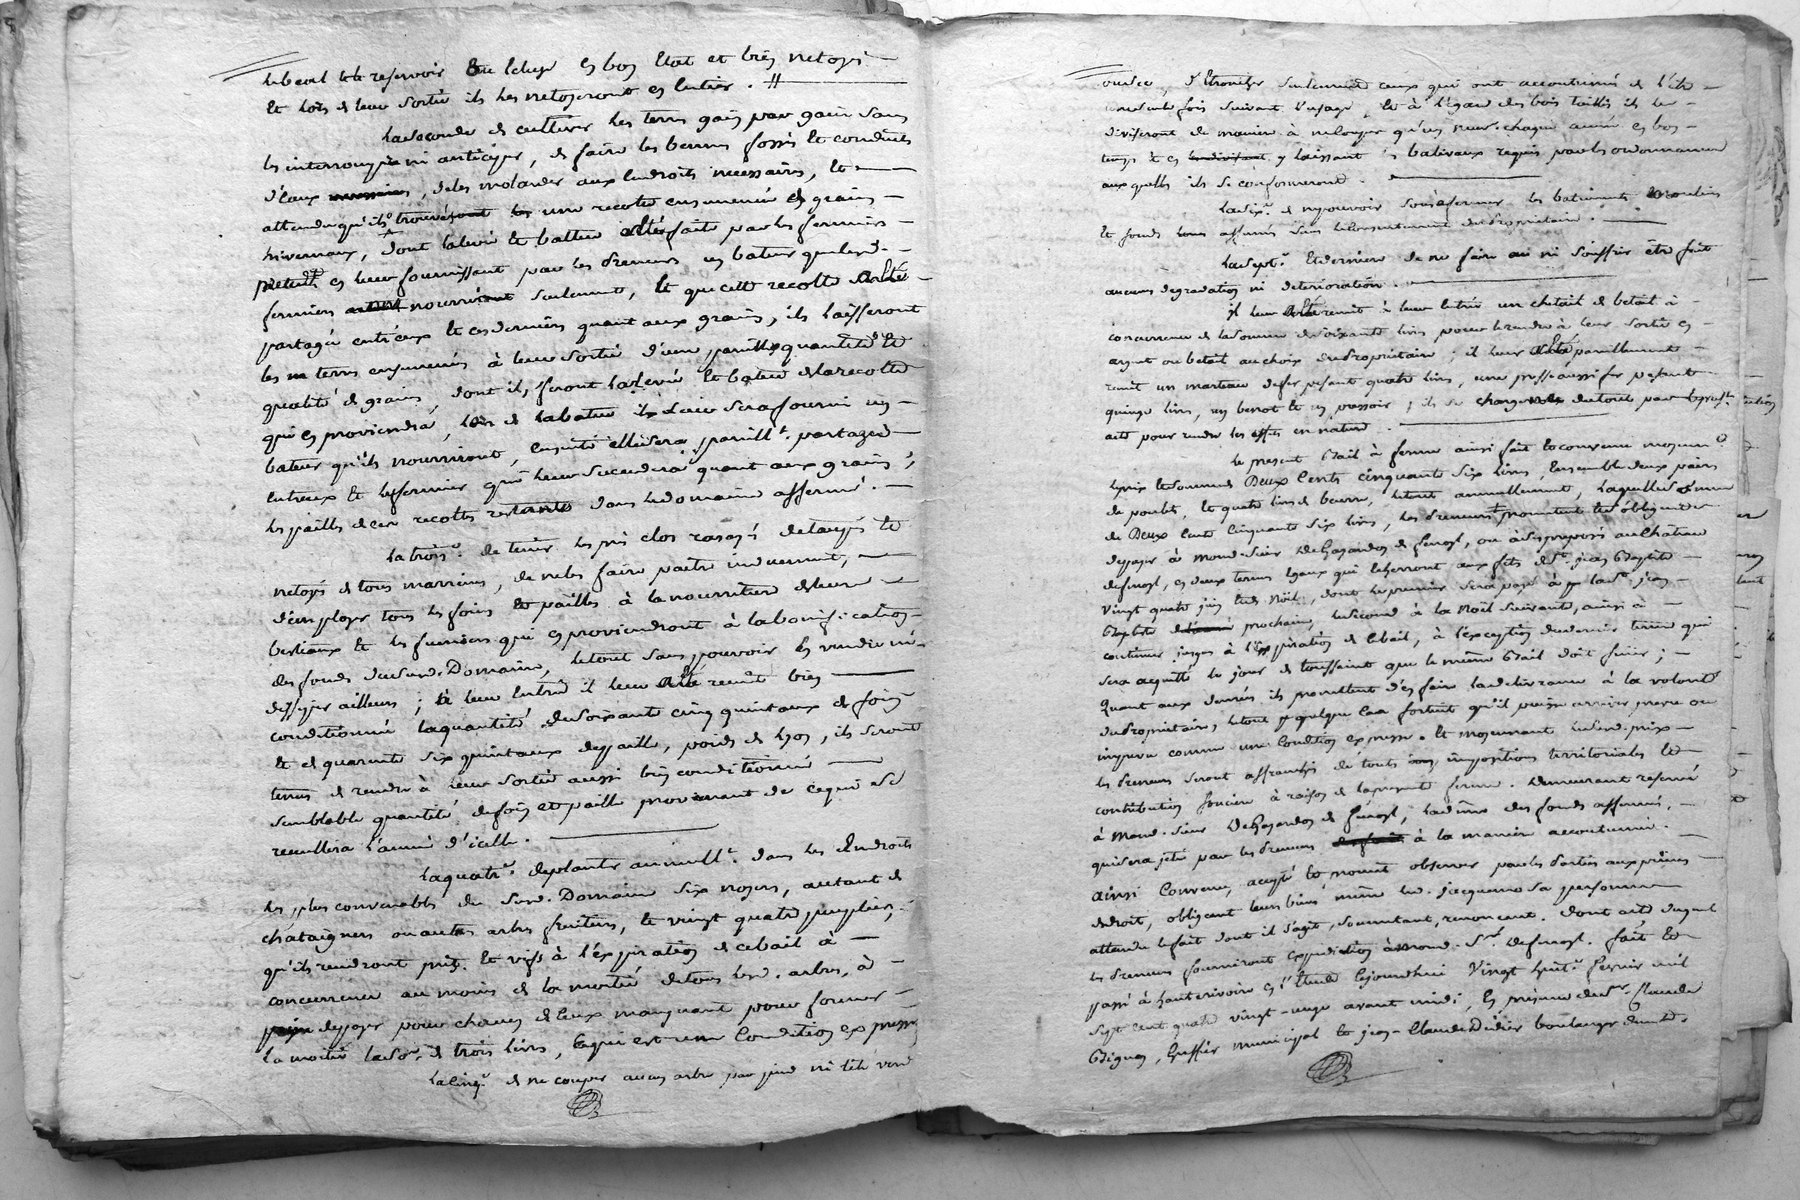 le beal et le reservoir de ecluse en bon Etat et bien netoyé
Et lors de leur sortie ils les netoyeront en entier. //
La seconde de cultiver les terres gain par gain sans
les interrompre ni anticiper, de faire les bennes fossés et conduits
d'eaux, de les molarder aux Endroits necessaires, et
attendu qu'ils une recolte ensemencée en grains
hivernaux, dont la levée et batture a été faite par les fermiers
en leur fournissant par les preneurs un bateur que les d.
fermiers nourriront seulement, et que cette recolte a été
partagée entr'eux et ces derniers quant aux grains, ils laisseront
les terres ensemencés à leur sortie d'une pareille quantité et
qualité de grains, dont ils feront la levée et bature de la recolte
qui en proviendra, lors de la bature il leur sera fourni un
bateur qu'ils nourriront, ensuite elle sera pareill.t partagée
entreux et le fermier qui leur succedera quant aux grains;
les pailles de ces recoltes restantes dans le domaine affermé.
La trois.e de tenir les prés clos rasés detaupés et
netoyés de tous marreins, de ne les faire paitre induement,
d'employer tous les foins et pailles à la nourriture de leurs
bestiaux et les fumiers qui en proviendront à la bonification
des fonds dud. Domaine, le tout sans pouvoir en vendre ni
ailleurs; à leur Entrée il leur a été remit bien
conditionné la quantité de soixante cinq quintaux de foin
et de quarante six quintaux de paille, poids de Lyon, ils seront
tenus de rendre à leur sortie aussi bien conditionné
semblable quantité de foin et paille provenant de ce qui se
recuillera l'année d'icelle.
La quatr.e de planter annuell.t dans les Endroits
les plus convenables du susd. Domaine six noyers, autant de
chataigners ou autres arbres fruitiers, et vingt quatre peupliers,
qu'ils rendront pris et vifs à l'expiration de ce bail à
concurrence au moins de la moitié de tous lesd. arbres, à
peine de payer pour chacun de ceux manquant pour former
la moitié la so.e de trois livres, ce qui est une Condition expresse
La cinq.e de ne couper aucun arbre par pied ni tête verd
ou sec, d'Etroncher seulement ceux qui ont accoutumé de l'être
une seule fois suivant l'usage, et à l'égard des bois taillis ils les
diviseront de maniere à n'en couper qu'un neuv.e chaque année en bon
temps et en y laissant les baliveaux requis par les ordonnances
aux quelles ils se conformeront.
La six.e de ne pouvoir sous affermer les batiments moulins
et fonds sous affermés sans le consentement du Proprietaire.
La sept.e Et derniere de ne faire ni souffrir etre fait
aucune degradation ni deterioration.
Il leur a été remit à leur entrée un chetail de betail à
concurrence de la somme de soixante livres pour le rendre à leur sortie en
argent ou betail au choix du Proprietaire; il leur a été pareillement
remit un marteau de fer pesant quatre livres, une presse aussi fer pesant
quinze livres, un benot et un pressoir; ils se chargent du tout par le pres.t
acte pour rendre les effets en nature.
Le present Bail à ferme ainsi fait et convenu moyen.t
le prix et somme de Deux Cents cinquante six livres Ensemble deux pairs
de poulets, et quatre livres de beurre, le tout annuellement, laquelle somme
de Deux cent Cinquante Six livres, les Preneurs promettent et s'obligent
de payer à Mond. Sieur DeGayardon de Fenoyl, ou à ses preposés au Château
de fenoyl, en deux termes egaux qui echerront aux fêtes de S.t jean Baptiste
Vingt quatre juin et de Noël, dont le premier sera payé à la S.t jean
Baptiste prochaine, le second à la Noël suivante, ainsi à
continuer jusqu'à l'expiration de ce bail, à l'exception du dernier terme qui
sera aquitté le jour de toussaint que le même Bail doit finir;
Quant aux denrées ils promettent d'en faire la delivrance à la volonté
du Proprietaire, le tout quelque cas fortuit qu'il puisse arriver prevu ou
imprevu comme une Condition expresse. Et moyennant led. prix
les Preneurs seront affranchis de toutes impositions territoriales et
contribution fonciere à raison de la presente ferme. Demeurant reservé
à Mond. Sieur DeGayardon de fénoyl, la dîme des fonds affermés,
qui sera jetée par les Preneurs à la maniere accoutumée.
Ainsi Convenu, accepté et promit observer par les Parties aux peines
de droit, obligeant leurs biens même led. jacquemo sa personne
attendu le fait dont il s'agit, soumettant, renonçant. Dont acte duquel
les Preneurs fourniront expedition à Mond. S.r de fenoyl. fait et
passé à hauterivoire en l'Etude Cejourdhui Vingt huit.e fevrier mil
sept cent quatre vingt onze avant midi; En presence de S.r Claude
Bignon, Greffier municipal et jean-Claude Didier boulanger